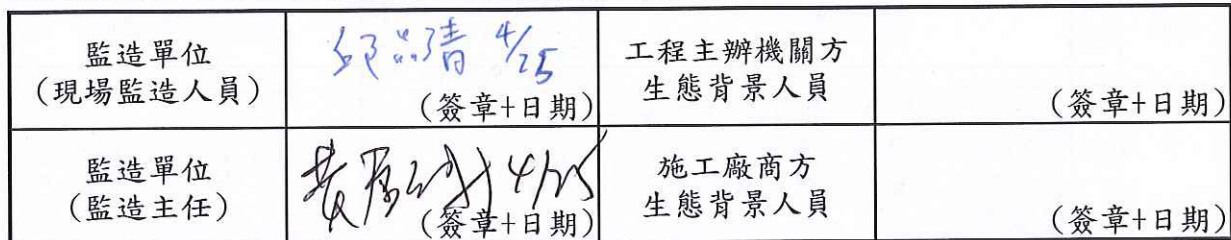 監造單位
(現場監造人員)
邱品清 4/25
(簽章+日期)
工程主辦機關方
生態背景人員
(簽章+日期)
監造單位
(監造主任)
4/25
(簽章+日期)
施工廠商方
生態背景人員
(簽章+日期)